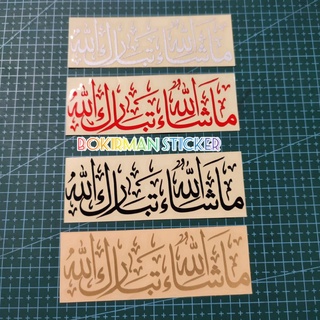 ما شاء الله تبارك الله
ما شاء الله تبارك الله
BOKIRMAN STICKER
ما شاء الله تبارك الله
ما شاء الله تبارك الله